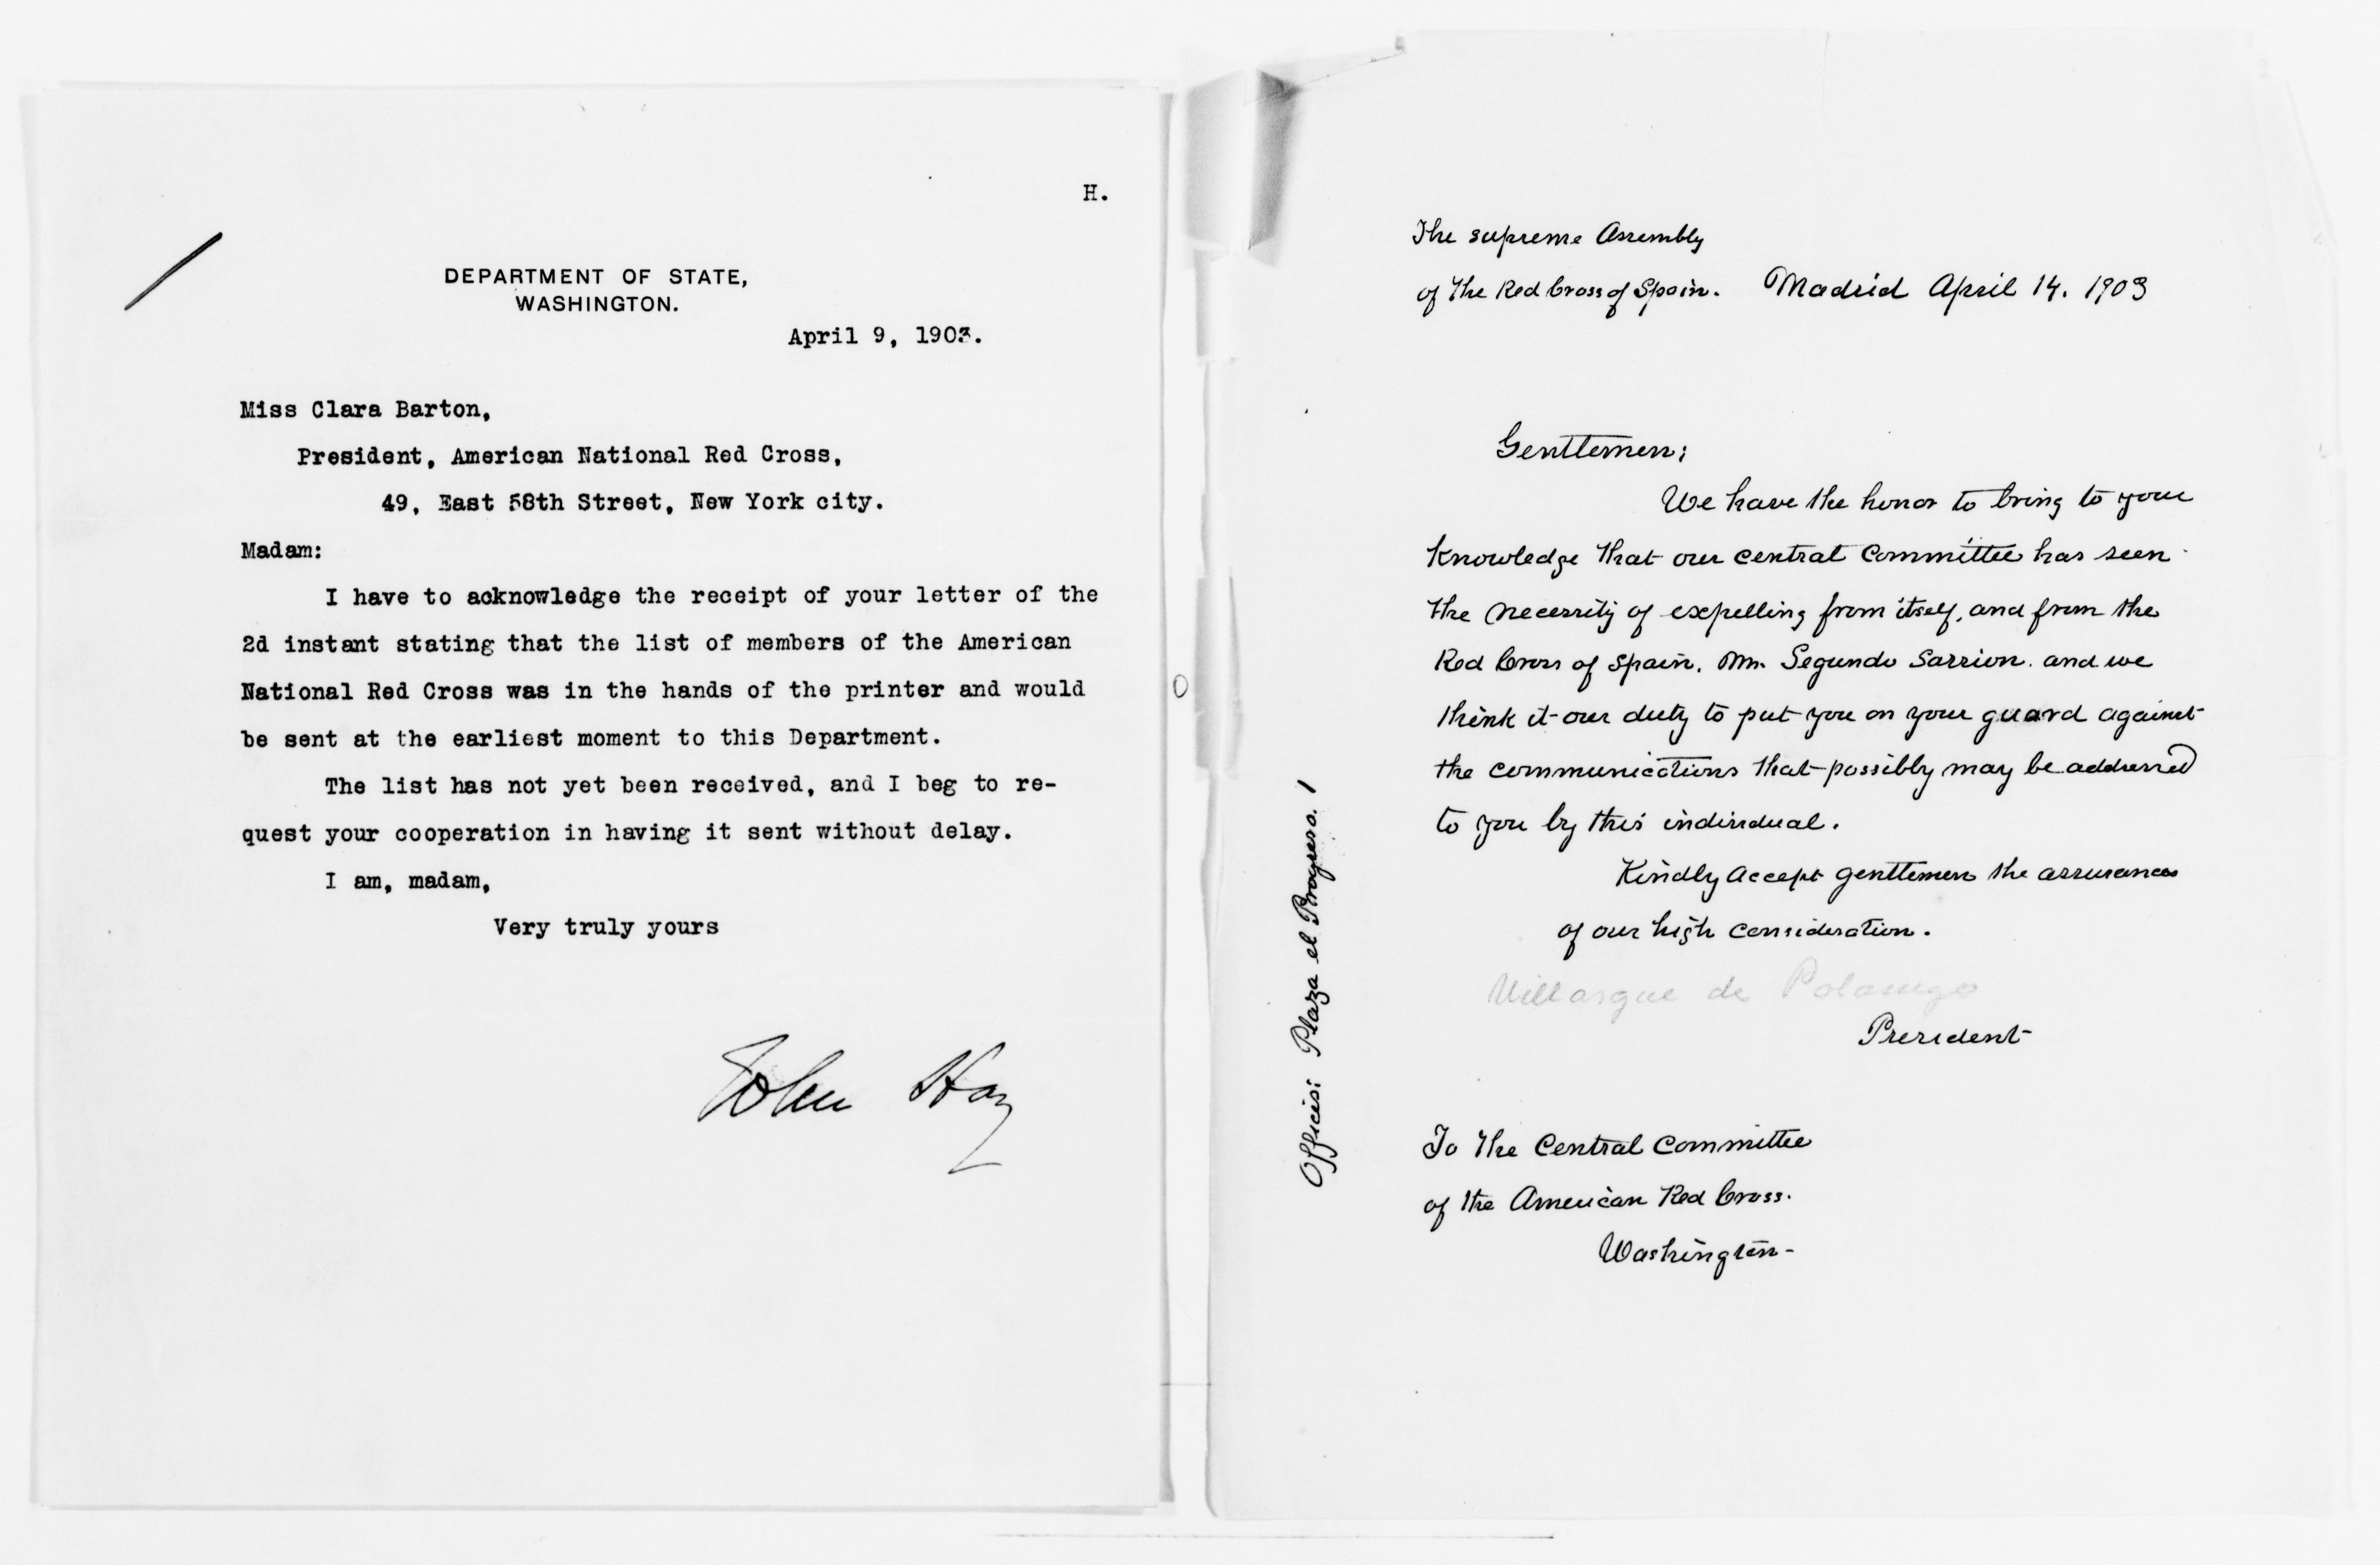 H.
DEPARTMENT OF STATE,
WASHINGTON.
April 9, 1903.
Miss Clara Barton,
President, American National Red Cross,
49, East 58th Street, New York city.
Madam:
I have to acknowledge the receipt of your letter of the
2d instant stating that the list of members of the American
National Red Cross was in the hands of the printer and would
be sent at the earliest moment to this Department.
The list has not yet been received, and I beg to re-
quest your cooperation in having it sent without delay.
I am, madam,
Very truly yours
John Hay
The supreme Assembly
of the Red Cross of Spain. Madrid April 14. 1903
Genttemen;
We have the honor to bring to your
knowledge that our central Committee has seen
the necessity of expelling from itself, and from the
Red Cross of Spain, Mr. Segundo Sarrion. and we
think it our duty to put you on your guard against
the communications that possibly may be addressed
to you by this individual.
Kindly accept genttemen the assurances
of our high consideration.
de
President
To the Central Committee
of the American Red Cross.
Washington-
Offices: Plaza el Progreso. 1